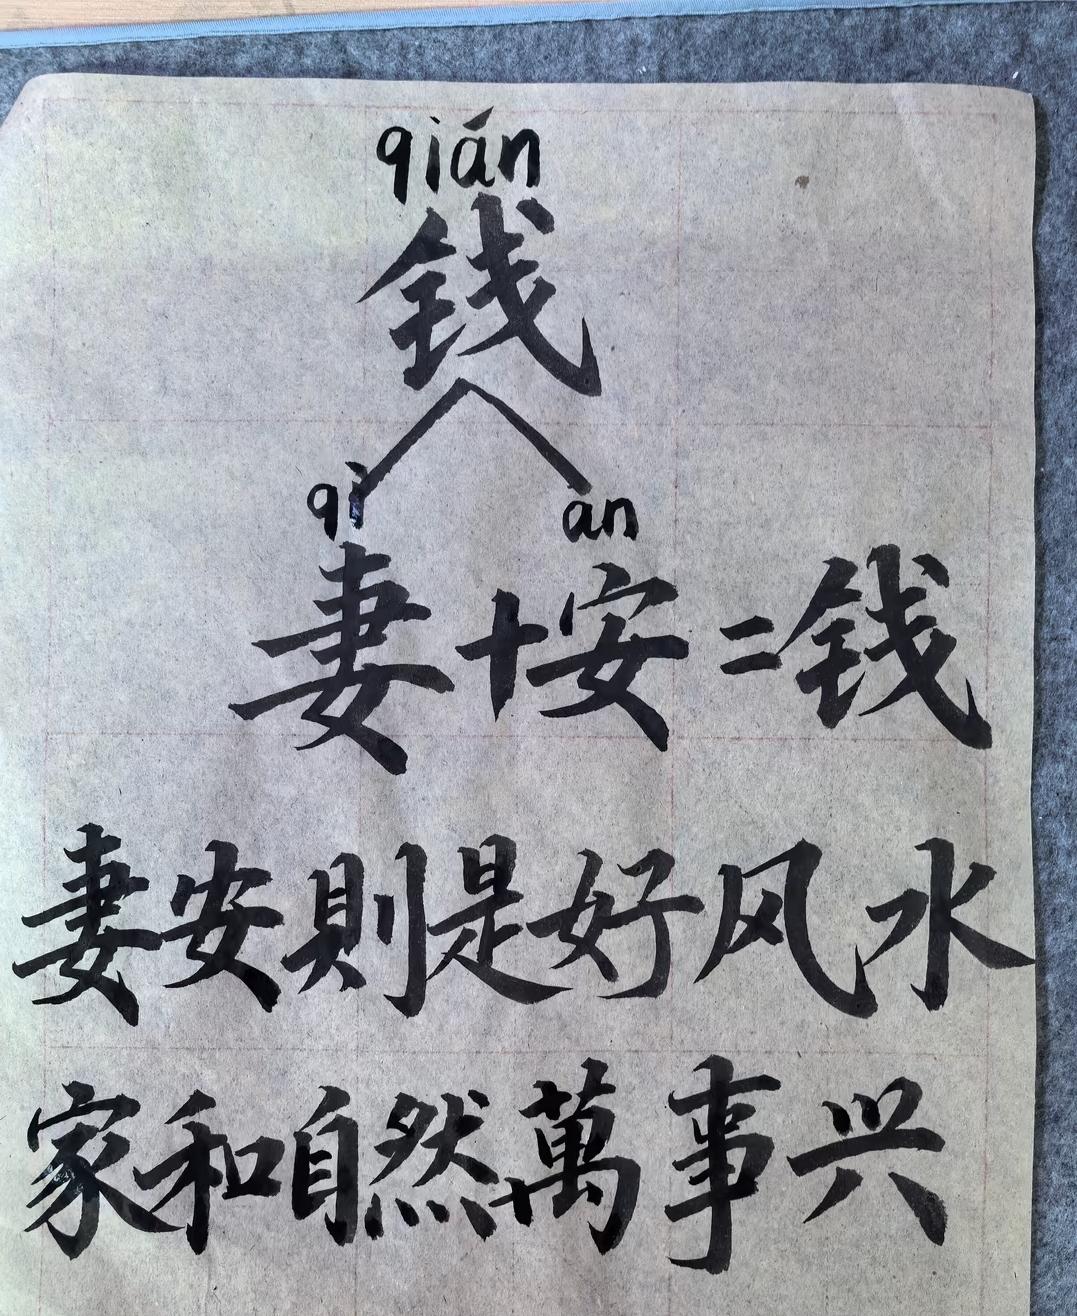 qián
钱
qi an
妻+安=钱
妻安則是好风水
家和自然萬事兴